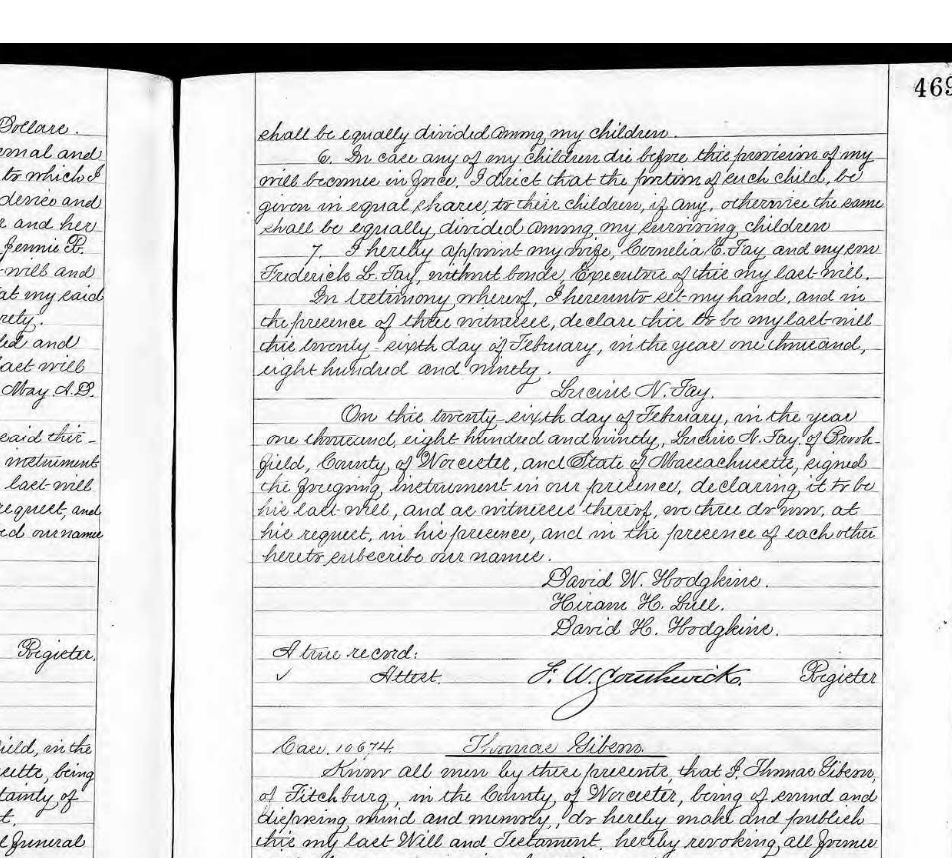 469
Dollars.
ernal and
to which I
dence and
e and her
Jennie B.
will and
at my said
rety.
led and
last will
May A.D.
said this-
instrument
last will
request, and
ed our names
Register.
ield, in the
setts, being
tainty of
t.
l funeral
shall be equally divided among my children.
6. In case any of my children die before this provision of my
will becomes in force, I direct that the portion of such child, be
given in equal shares, to their children, if any, otherwise the same
shall be equally, divided among my surviving children
7 I hereby appoint my wife, Cornelia E. Fay and my son
Frederick L. Fay, without bonds, Executors of this my last will.
In testimony whereof, I hereunto set my hand, and in
the presence of three witnesses, declare this to be my last will
this twenty-sixth day of February, in the year one thousand,
eight hundred and ninety.
Lucius N. Fay.
On this twenty-sixth day of February, in the year
one thousand, eight hundred and ninety, Lucius N. Fay, of Brook-
field, County, of Worcester, and State of Massachusetts, signed
the foregoing, instrument in our presence, declaring, it to be
his last will, and as witnesses thereof, we three do now, at
his request, in his presence, and in the presence of each other
hereto subscribe our names.
David W. Hodgkins.
Hiram H. Bull.
David H. Hodgkins.
A true record:
Attest. F. W. Southwick. Register
Case. 10674. Thomas Gibson.
Know all men by these presents, that I, Thomas Gibson,
of Fitchburg, in the County, of Worcester, being of sound and
disposing mind and memory, do hereby make and publish
this my last Will and Testament, hereby revoking, all former